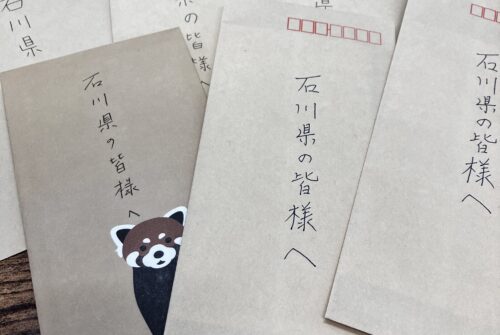 石川県の皆様へ
石川県の皆様へ
石川県の皆様へ
の皆様
石川県